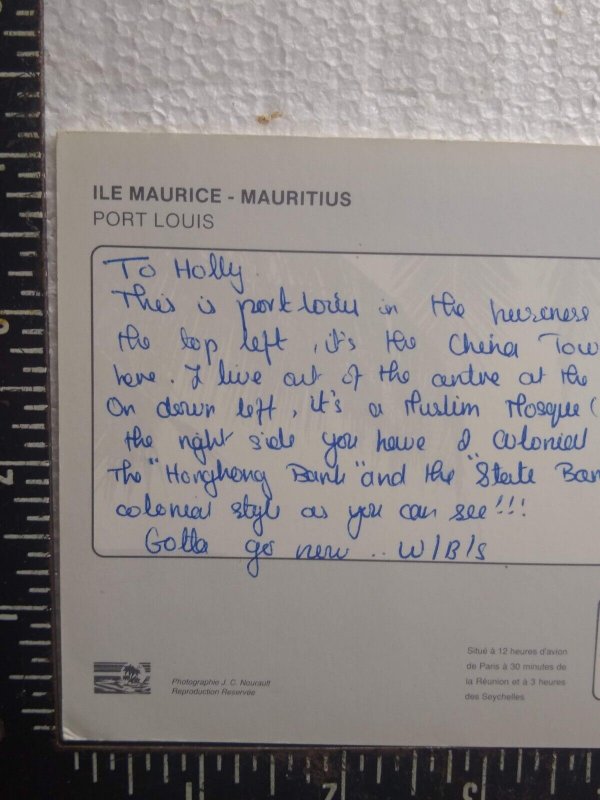 ILE MAURICE - MAURITIUS
PORT LOUIS
To Holly.
This is port louis in the
the top left, it's the China Tow
here. I live out of the centre at the
On down left, it's a Muslim Mosque (
the right side you have 2 colonial
The "Hongkong Bank" and the "State Ban
colonial style as you can see!!!
Gotta go now .. W/B/S
Photographie J. C. Nourault
Reproduction Reservée
Situé à 12 heures d'avion
de Paris à 30 minutes de
la Réunion et à 3 heures
des Seychelles
2
1
2
3